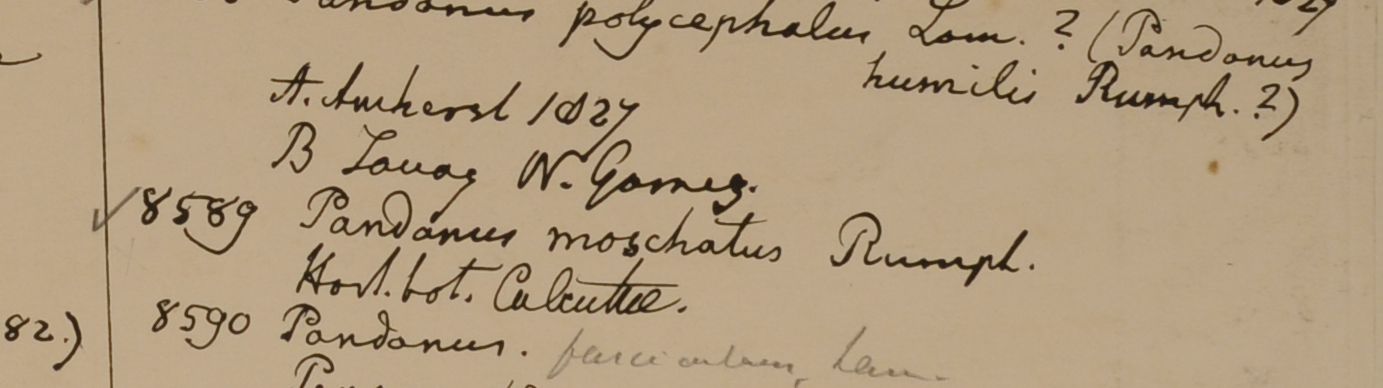 Pandanus polycephalus Lam. ? (Pandanus
humilis Rumph. ?)
A. Amherst 1827
B Tavoy W. Gomez.
8589 Pandanus moschatus Rumph.
Hort. bot. Calcuttae.
82.) 8590 Pandanus. fascicularis, Lam.